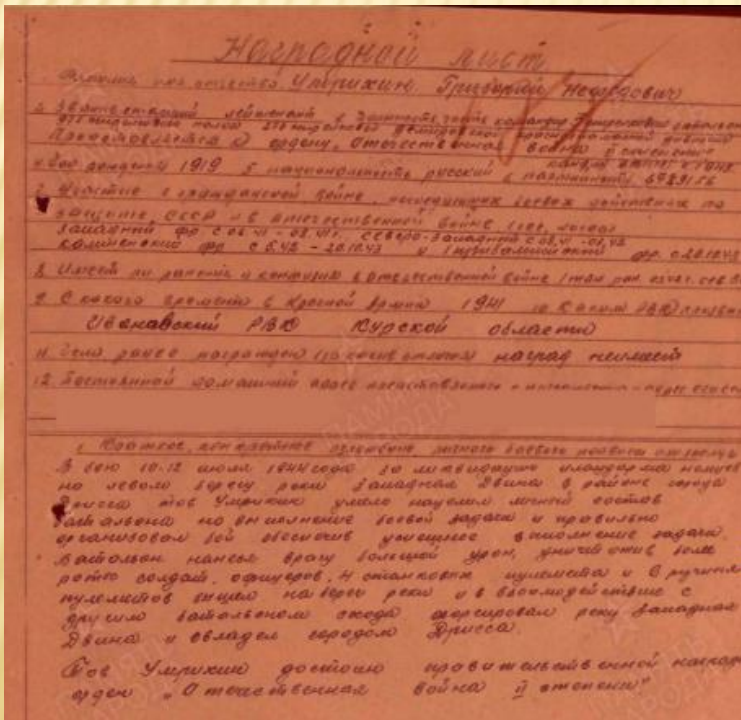 Наградной лист
1. Фамилия имя отчество Умрихин Григорий Нефедович
2. Звание старший лейтенант 3. Должность, часть командир стрелкового батальона
стрелкового полка стрелковой дивизии
Представляется к ордену, Отечественная война II степени
4. Год рождения 1919 5 национальность русский 6 партийность
7. Участие в гражданской войне, последующих боевых действиях по
защите СССР и в отечественной войне (где, когда)
Западный фр с 06.41 - 08.41г. Северо-Западный с 08.41 -
фр с 5.42 - 20.10.43 и I прибалтийский фр. с 20.10.43
8. Имеет ли ранения и контузии в отечественной войне
9. С какого времени в Красной Армии 1941 10 Каким РВК призван
РВК Курской области
11. Чем ранее награжден (за какие отличия) наград не имеет
12. Постоянный домашний адрес
1. Краткое, конкретное изложение личного боевого подвига или заслуг
В бою 10-12 июля 1944 года за ликвидацию плацдарма немцев
на левом берегу реки Западная Двина в районе города
Дрисса тов Умрихин умело нацелил личный состав
батальона на выполнение боевой задачи и правильно
организовал бой обеспечив успешное выполнение задачи.
Батальон нанеся врагу большой урон, уничтожив более
роты солдат, офицеров, 4 станковых пулемета и 6 ручных
пулеметов вышел на берег реки и в взаимодействие с
другим батальоном сходу форсировал реку Западная
Двина и овладел городом Дрисса.
Тов Умрихин достоин правительственной награды
орден „Отечественная война II степени"